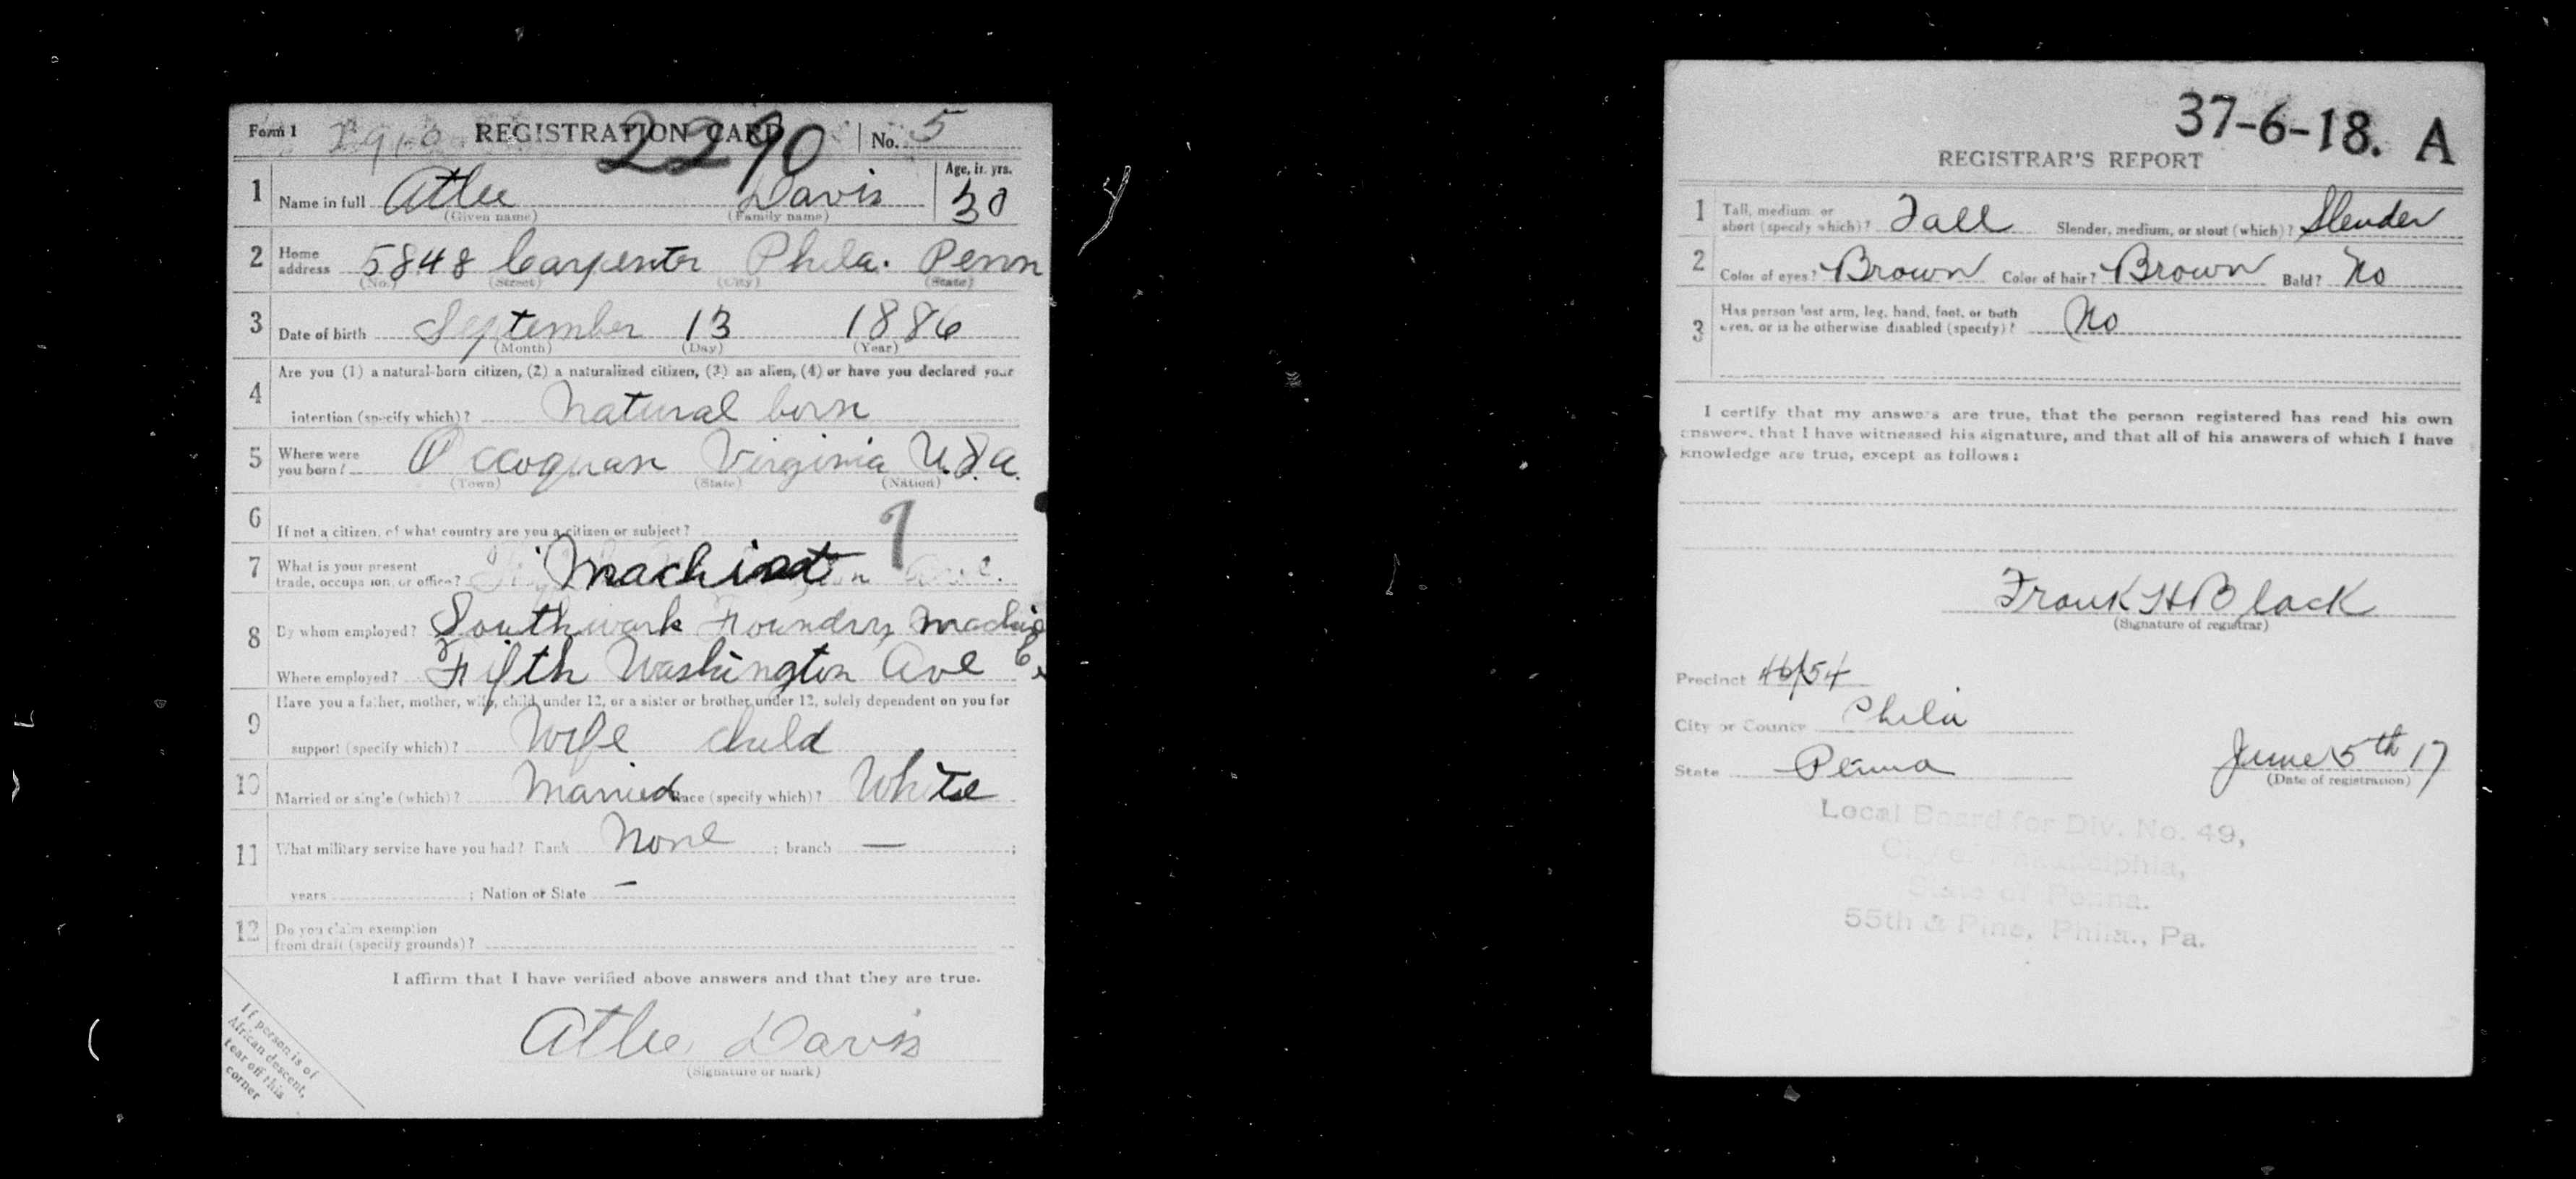 Form 1 REGISTRATION CARD No. 5
2290
Age, in yrs.
1 Name in full Atlee Davis 30
(Given name) (Family name)
2 Home address 5848 Carpenter Phila. Penn
(No.) (Street) (City) (State)
3 Date of birth September 13 1886
(Month) (Day) (Year)
4 Are you (1) a natural-born citizen, (2) a naturalized citizen, (3) an alien, (4) or have you declared your
intention (specify which)? Natural born
5 Where were you born? Occoquan Virginia U.S.a.
(Town) (State) (Nation)
6 If not a citizen, of what country are you a citizen or subject?
7 What is your present
trade, occupation, or office? Machinist
8 By whom employed? Southwark Foundry Machine Co
Where employed? Fifth Washington Ave
9 Have you a father, mother, wife, child under 12, or a sister or brother under 12, solely dependent on you for
support (specify which)? Wife child
10 Married or single (which)? Married Race (specify which)? White
11 What military service have you had? Rank None ; branch — ;
years ; Nation or State —
12 Do you claim exemption
from draft (specify grounds)?
I affirm that I have verified above answers and that they are true.
Atlee Davis
(Signature or mark)
If person is of
African descent,
tear off this
corner
37-6-18. A
REGISTRAR'S REPORT
1 Tall, medium, or
short (specify which)? Tall Slender, medium, or stout (which)? Slender
2 Color of eyes? Brown Color of hair? Brown Bald? No
3 Has person lost arm, leg, hand, foot, or both
eyes, or is he otherwise disabled (specify)? No
I certify that my answers are true, that the person registered has read his own
answers, that I have witnessed his signature, and that all of his answers of which I have
knowledge are true, except as follows:
Frank H Black
(Signature of registrar)
Precinct 46/54
City or County Phila
State Penna June 5th 17
(Date of registration)
Local Board for Div. No. 49,
City of Philadelphia,
State of Penna.
55th & Pine, Phila., Pa.